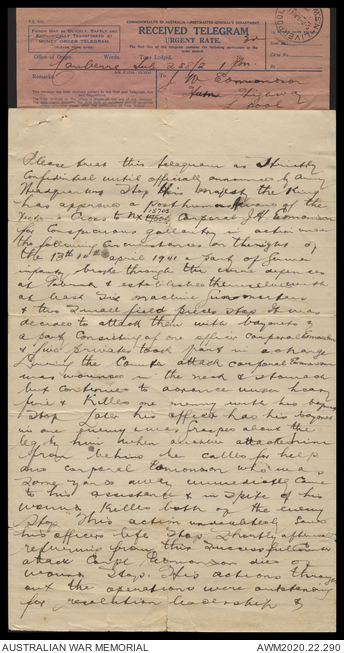 COMMONWEALTH OF AUSTRALIA—POSTMASTER-GENERAL'S DEPARTMENT.
RECEIVED TELEGRAM
URGENT RATE.
MONEY ORDER TELEGRAM
Office of Origin. Words. Time Lodged.
Canberra
Remarks To
J W Edmondson
Hume Highway
pool
Please treat this telegram as strictly
Confidential until officially announced by Army
Headquarters Stop His Majesty the King
has approved a Posthumous Award of the
Victoria Cross to NX 15705 Corporal J H Edmondson
for Conspicuous gallantry in action under
the following circumstances on the night of
the 13th 14th April 1941 a party of German
infantry broke through the wire defences
at Tobruk & established themselves with
at least six machine guns mortars
& two small field pieces Stop It was
decided to attack them with bayonets &
a party Consisting of one officer corporal Edmondson
& five privates took part in a charge
During the Counter attack corporal Edmondson
was wounded in the neck & stomach
but continued to advance under heavy
fire & Killed one enemy with his bayonet
Stop Later his officer had his bayonet
in one enemy & was grasped about the
legs by him when another attacked him
from behind he called for help
and corporal Edmondson who was
some yards away immediately came
to his assistance & in spite of his
wounds Killed both of the enemy
Stop This action undoubtedly saved
his officers life Stop Shortly after
returning from this successful counter
attack Corpl Edmondson died of
wounds Stop. His actions through
out the operations were outstanding
for resolution leadership &
AUSTRALIAN WAR MEMORIAL
AWM2020.22.290